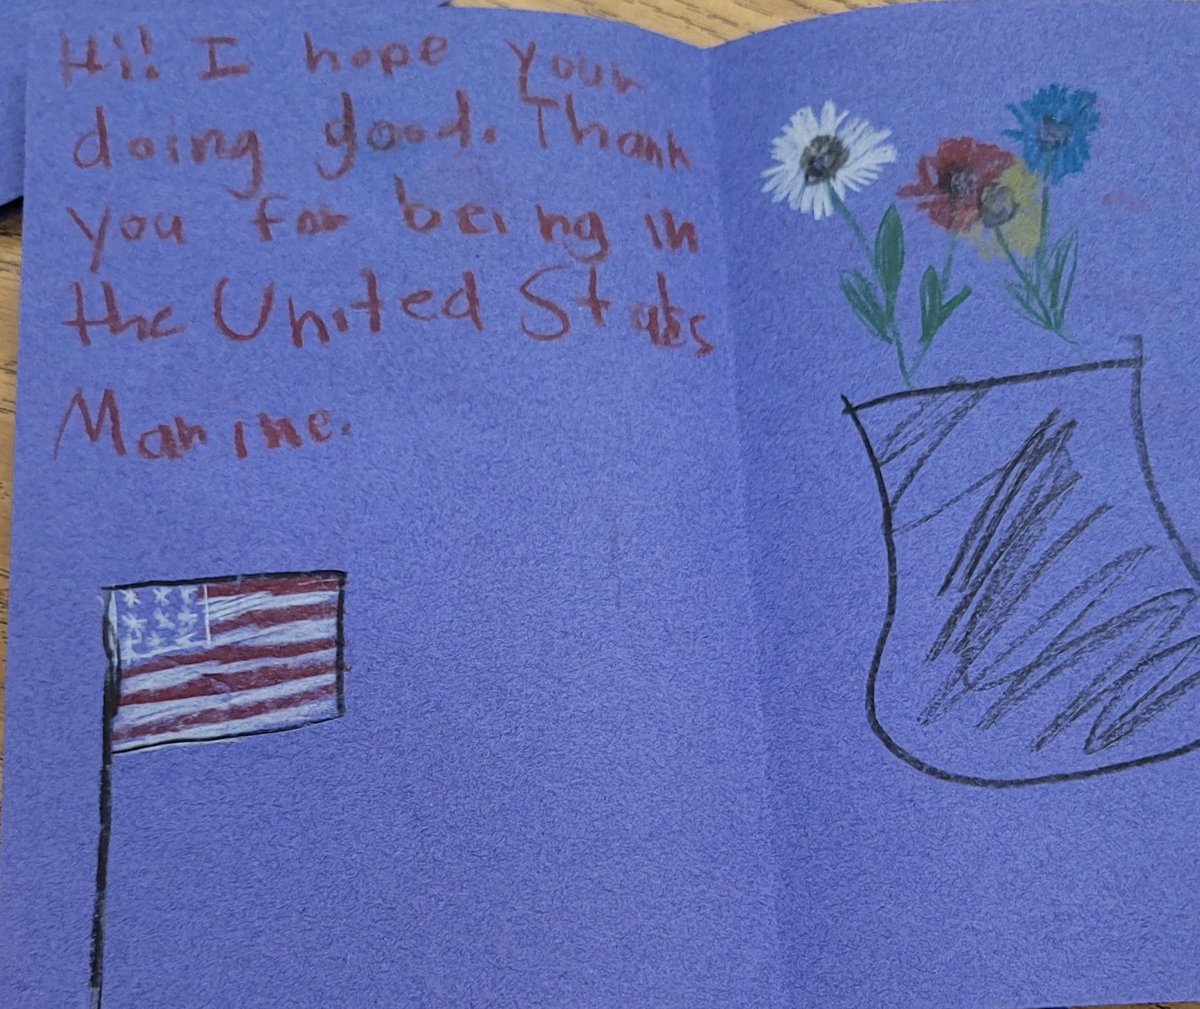 Hi! I hope your
doing good. Thank
you for being in
the United States
Marine.